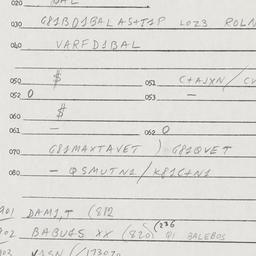 020 BAL
030 G81BD1BAL AS+T1P L0Z3 POLN
040 VARFD1BAL
050 $ 051 C+AJXN/CV
052 0 053 —
060 $
061 — 062 0
070 G81MAXTAVET ) G81QVET
080 — QSMUTN1/K81C+N1
901 DAM1,T (812
902 BABUAS XX (820) (236 Q1 BALEBOS
903 VASN (/17302